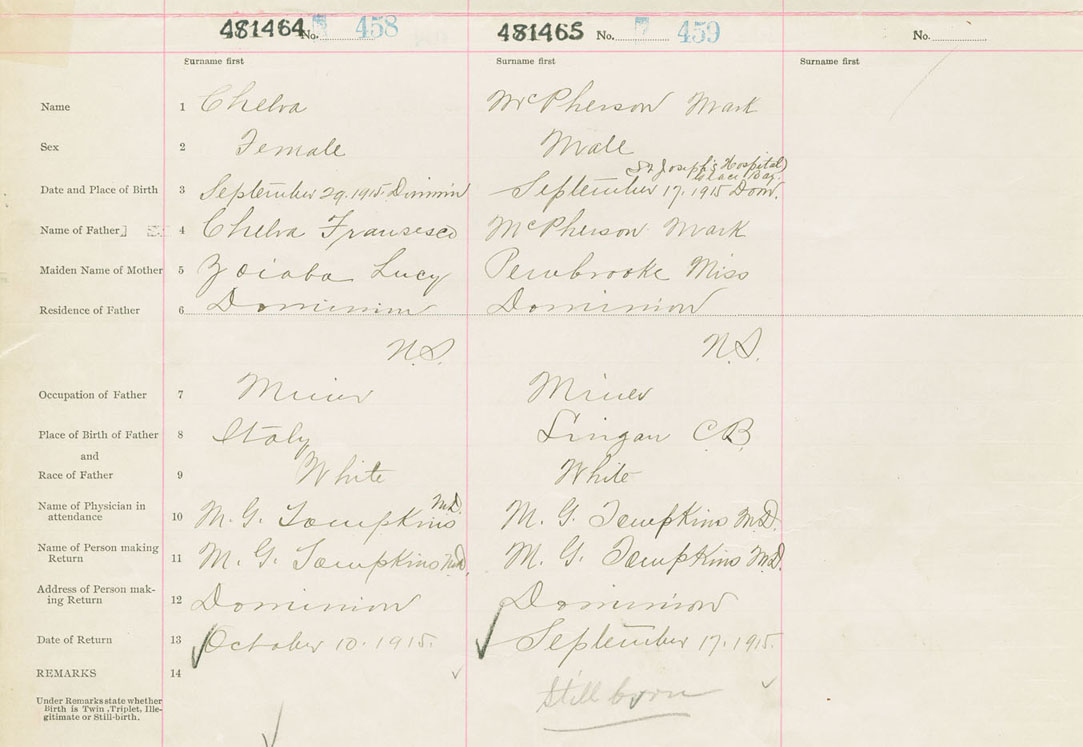 481464 No. 458 481465 No. 459 No.
Surname first Surname first Surname first
Name 1 Chelva McPherson Mark
Sex 2 Female Male
(St Joseph's Hospital)
Glace Bay.
Date and Place of Birth 3 September 29. 1915. Dominion September 17. 1915 Dom.
Name of Father 4 Chelva Fransesco McPherson Mark
Maiden Name of Mother 5 Lucy Pembrooke Miss
Residence of Father 6 Dominion Dominion
N.S. N.S.
Occupation of Father 7 Miner Miner
Place of Birth of Father 8 Italy Lingan C.B.
and
Race of Father 9 White White
Name of Physician in
attendance 10 M. G. Tompkins M.D. M. G. Tompkins M.D.
Name of Person making
Return 11 M. G. Tompkins M.D. M. G. Tompkins M.D.
Address of Person mak-
ing Return 12 Dominion Dominion
Date of Return 13 October 10. 1915. September 17. 1915.
REMARKS 14
Still born
Under Remarks state whether
Birth is Twin, Triplet, Ille-
gitimate or Still-birth.